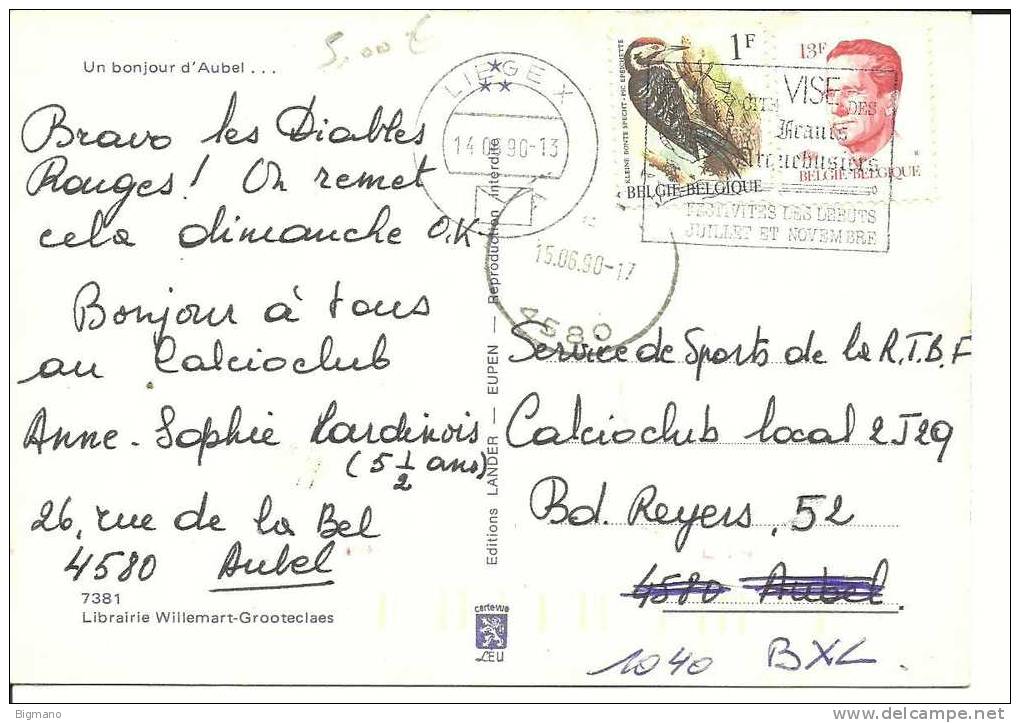 Un bonjour d'Aubel ...
5,00 €
Bravo les Diables
Rouges! On remet
cela dimanche O.K
Bonjour à tous
au Calcioclub
Anne-Sophie Lardinois
(5 1/2 ans)
26, rue de la Bel
4580 Aubel
7381
Librairie Willemart-Grooteclaes
Editions LANDER — EUPEN — Reproduction interdite
carte vue
LEU
LIEGE X
14 06 90-13
15.06.90-17
4580
KLEINE BONTE SPECHT - PIC EPEICHETTE
1F
BELGIE-BELGIQUE
13F
BELGIE-BELGIQUE
VISE
CITE DES
Francs
Arquebusiers
FESTIVITES LES DEBUTS
JUILLET ET NOVEMBRE
Service de Sports de la R.T.B.F
Calcioclub local 2J29
Bd. Reyers, 52
4580 Aubel.
1040 BXL.
Bigmano
www.delcampe.net